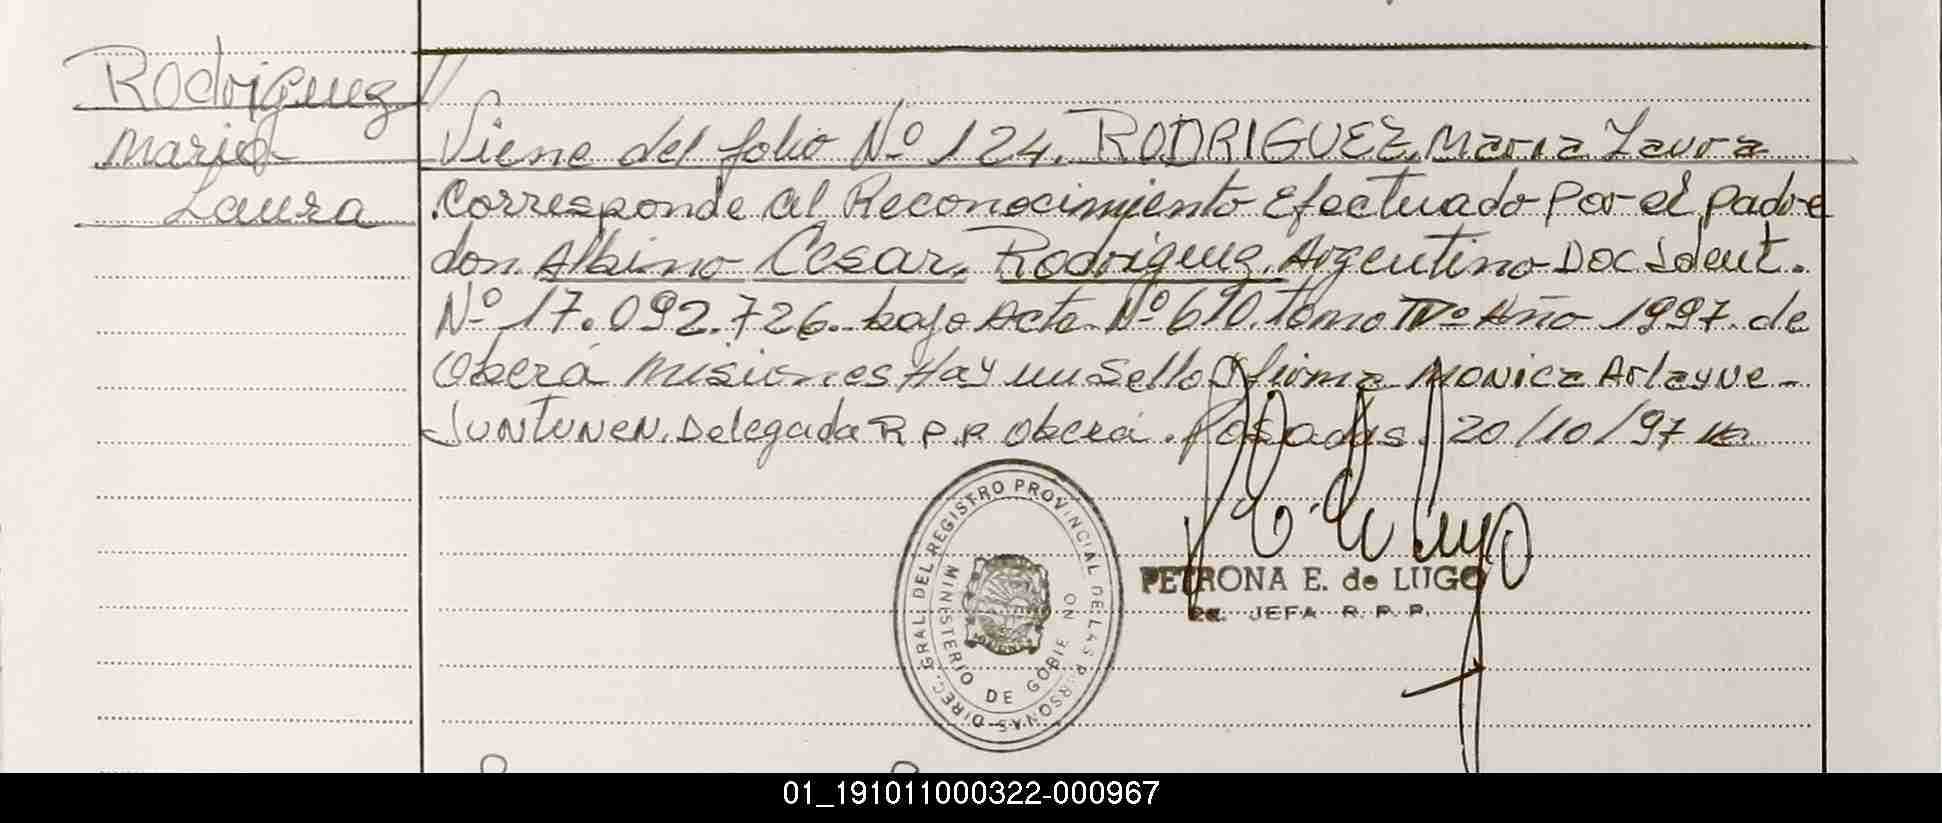 Rodriguez
Maria
Laura
Viene del folio Nº 124. RODRIGUEZ, Maria Laura
Corresponde al Reconocimiento Efectuado Por el padre
don Albino Cesar Rodriguez, Argentino Doc Ident.
Nº 17.092.726. bajo Acta Nº 610. tomo IVº Año 1997. de
Oberá Misiones Hay un Sello y firma Monica Arlayne
JUNTUNEN. Delegada R.P.P. Oberá. Posadas. 20/10/97
DIREC. GRAL. DEL REGISTRO PROVINCIAL DE LAS PERSONAS
MINISTERIO DE GOBIERNO
PETRONA E. de LUGO
JEFA R. P. P.
01_191011000322-000967